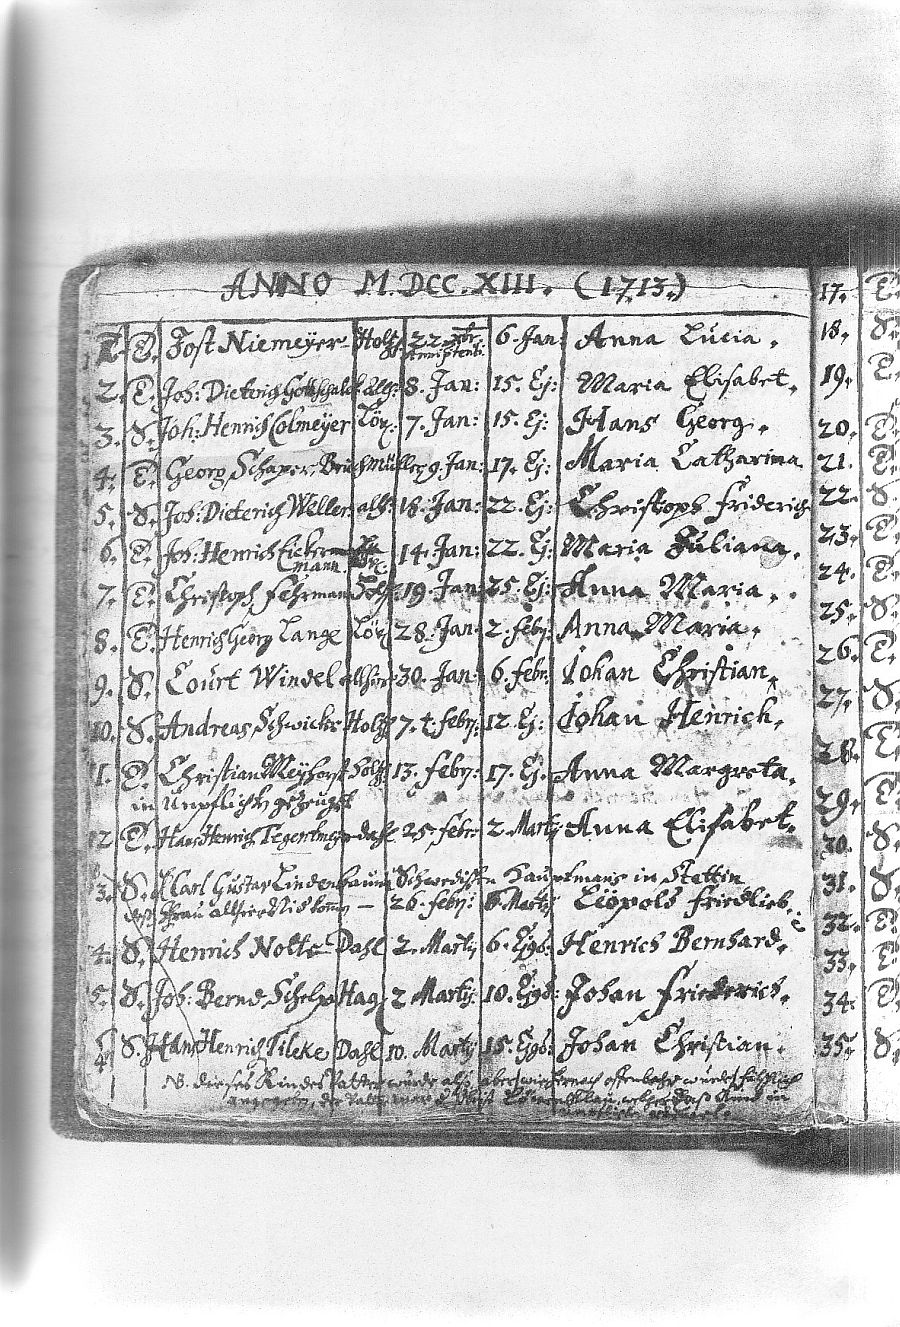 ANNO M.DCC.XIII. (1713.)
1. T. Jost Niemeyer Holtz. 22. xbr 6. Jan: Anna Lucia.
2. T. Joh: Dieterich Gottschalck alh: 8. Jan: 15. Ej: Maria Elisabet.
3. S. Joh: Henrich Colmeyer Löy: 7. Jan: 15. Ej: Hans Georg.
4. T. Georg Schaper, Bruchmüller 9. Jan: 17. Ej: Maria Catharina
5. S. Joh: Dieterich Weller alh: 18. Jan: 22. Ej: Christoph Friderich
6. T. Joh: Henrich 14. Jan: 22. Ej: Maria Juliana.
mann.
7. T. Christoph Fehrman Holtz. 19. Jan: 25. Ej: Anna Maria.
8. T. Henrich Georg Lange Löy 28. Jan: 2. febr: Anna Maria.
9. S. Court Windel allhier 30. Jan: 6. febr: Johan Christian.
10. S. Andreas Schwicke Holtz 7. febr: 12. Ej: Johan Henrich.
1. T. Christian Meyhorst Holtz. 13. febr: 17. Ej. Anna Margreta.
in Unpflichten gezeuget
12 T. Hans Henrich Tegentmeyer dahl 25. febr: 2. Martij Anna Elisabet.
3. S. Carl Gustav Lindenbaum Schwedischen Hauptmans in Stettin
Frau allhier — 26. febr: 6. Martij Leopold Friedlieb.
4. S. Henrich Nolte Dahl 2. Martij 6. Ejgd: Henrich Bernhard.
5. S. Joh: Bernd Schelpe Hag: 2 Martij: 10. Ejgd: Johan Friederich.
6 S. Hans Henrich Tileke Dahl 10. Martij 15. Ejgd: Johan Christian.
NB. dieses Kindes Vatter wurde alh. aber hernach
angegeben, der Vatter war
17. T.
18. S.
19. T.
20. T.
21. T.
22. S.
23. T.
24. T.
25. S.
26. T.
27. S.
28. T.
29. T.
30. S.
31. S.
32. T.
33. T.
34. T.
35. S.